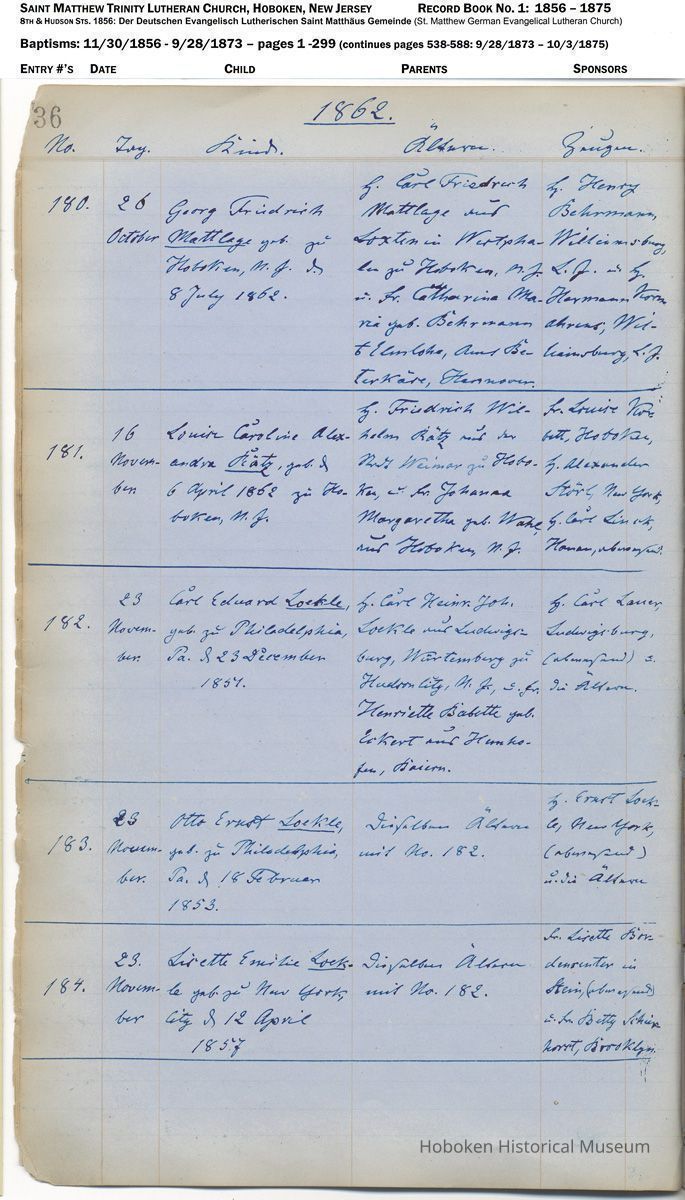 SAINT MATTHEW TRINITY LUTHERAN CHURCH, HOBOKEN, NEW JERSEY RECORD BOOK NO. 1: 1856 – 1875
8TH & HUDSON STS. 1856: Der Deutschen Evangelisch Lutherischen Saint Matthäus Gemeinde (St. Matthew German Evangelical Lutheran Church)
Baptisms: 11/30/1856 - 9/28/1873 – pages 1 -299 (continues pages 538-588: 9/28/1873 – 10/3/1875)
ENTRY #'S DATE CHILD PARENTS SPONSORS
36
1862.
No. Tag. Kind. Ältern. Zeugen.
180.
26
October
Georg Friedrich
Mattlage geb. zu
Hoboken, N. J. d.
8 July 1862.
H. Carl Friedrich
Mattlage aus
Loxten in Westpha-
len zu Hoboken, N. J.
u. Fr. Catharina Ma-
ria geb. Behrmann
Hannover.
H. Henry
Behrmann,
Williamsburg,
L. J. u. H.
Hermann
ahrens, Wil-
liamsburg, L. J.
181.
16
Novem-
ber.
Louise Caroline Alex-
andra Rätz, geb. d.
6 April 1862 zu Ho-
boken, N. J.
H. Friedrich Wil-
helm Rätz aus der
Stadt Weimar zu Hobo-
ken, u. Fr. Johanna
Margaretha geb.
aus Hoboken, N. J.
Fr. Louise
Hoboken,
H. Alexander
New York,
H. Carl Linck,
Hanau, abwesend.
182.
23
Novem-
ber.
Carl Eduard Loekle,
geb. zu Philadelphia,
Pa. d. 23 December
1851.
H. Carl Heinr. Joh.
Loekle aus Ludwigs-
burg, Würtemberg zu
Hudson City, N. J., u. Fr.
Henriette Babette geb.
Eckert aus
Baiern.
H. Carl Lauer,
Ludwigsburg,
(abwesend) u.
die Ältern.
183.
23
Novem-
ber.
Otto Ernst Loekle,
geb. zu Philadelphia,
Pa. d. 18 Februar
1853.
Dieselben Ältern
mit No. 182.
H. Ernst Loek-
le, New York,
(abwesend)
u. die Ältern
184.
23.
Novem-
ber
Lisette Emilie Loek-
le geb. zu New York
City d. 12 April
1857
Dieselben Ältern
mit No. 182.
Fr. Lisette
in
Stein, (abwesend)
u. Fr. Betty
Brooklyn.
Hoboken Historical Museum